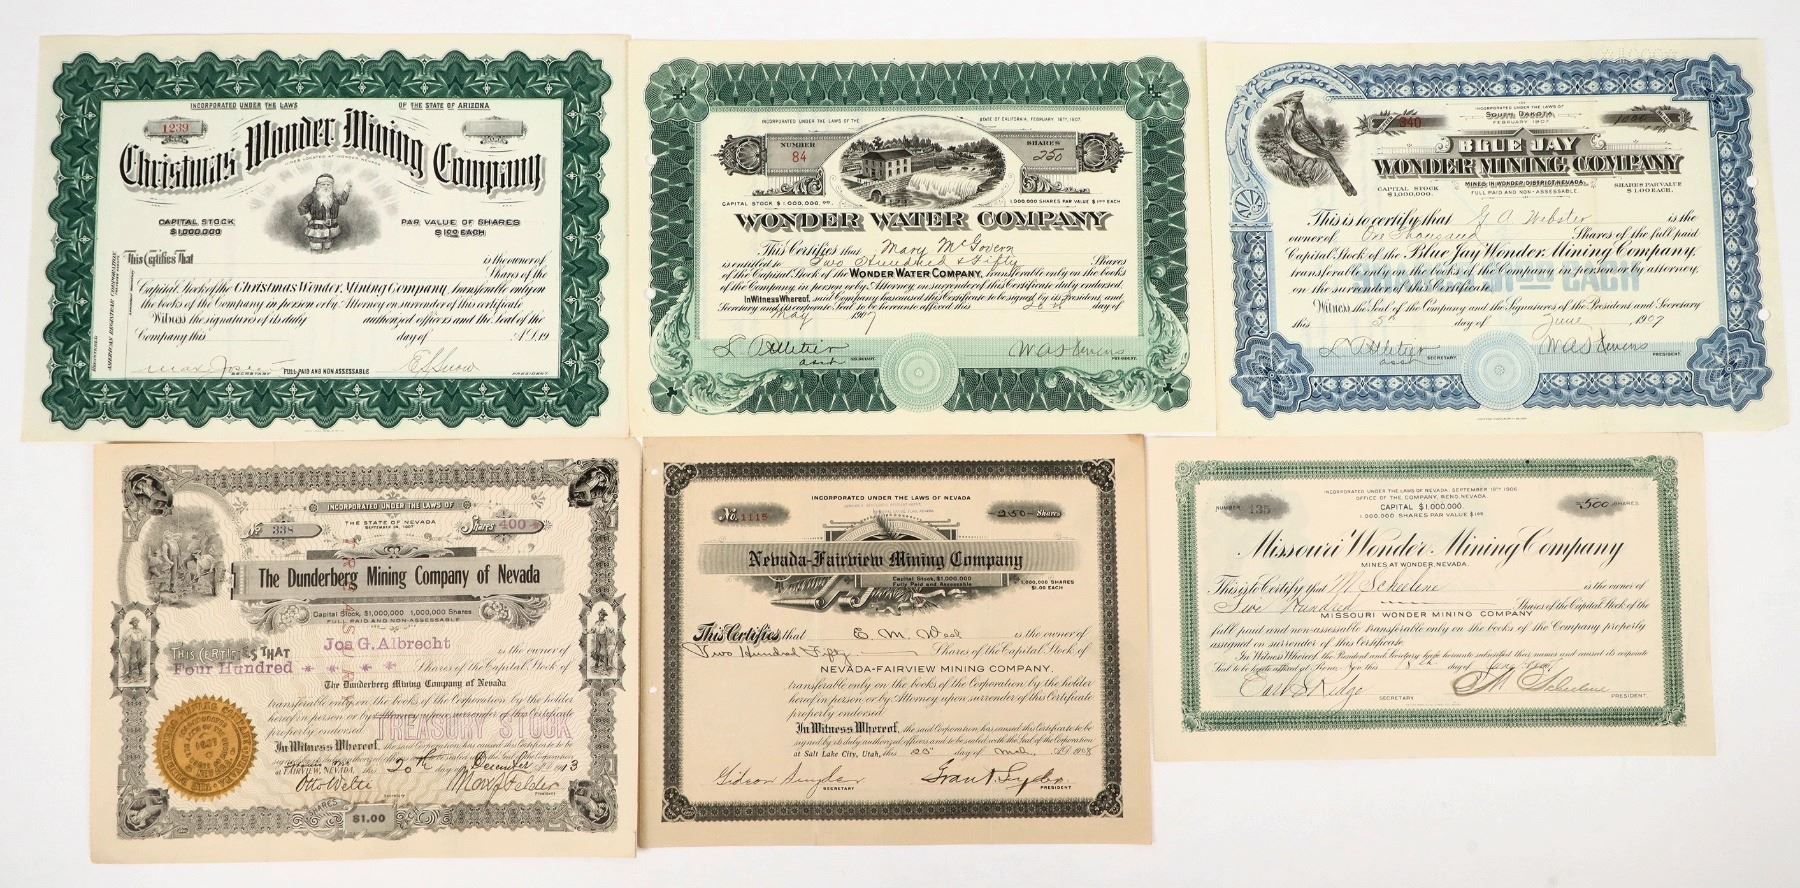 INCORPORATED UNDER THE LAWS OF THE STATE OF ARIZONA
1239
Christmas Wonder Mining Company
CAPITAL STOCK
$1,000,000
PAR VALUE OF SHARES
$1.00 EACH
This Certifies That
is the owner of
Shares of the
Capital Stock of the Christmas Wonder Mining Company, transferable only on
the books of the Company in person or by Attorney on surrender of this certificate
Witness the signatures of its duly authorized officers and the Seal of the
Company this day of A.D. 19
SECRETARY
FULL PAID AND NON ASSESSABLE
PRESIDENT
REGISTERED
INCORPORATED UNDER THE LAWS OF THE STATE OF CALIFORNIA, FEBRUARY 16TH, 1907.
NUMBER
84
SHARES
250
CAPITAL STOCK $1,000,000.00
1,000,000 SHARES PAR VALUE $1.00 EACH
WONDER WATER COMPANY
This Certifies that Mary McGovern
is entitled to Two Hundred & Fifty Shares
of the Capital Stock of the WONDER WATER COMPANY, transferable only on the books
of the Company in person or by Attorney on surrender of this Certificate duly endorsed.
In Witness Whereof, said Company has caused this Certificate to be signed by its President and
Secretary and its corporate Seal to be hereunto affixed this day of
May 1907
L Pelletier
asst
SECRETARY
W A Stevens
PRESIDENT
INCORPORATED UNDER THE LAWS OF
SOUTH DAKOTA
FEBRUARY 1907
340
1000
BLUE JAY
WONDER MINING COMPANY
CAPITAL STOCK
$1,000,000.
MINES IN WONDER DISTRICT, NEVADA.
FULL PAID AND NON-ASSESSABLE.
SHARES PAR VALUE
$1.00 EACH.
This is to certify that G A Webster is the
owner of One Thousand Shares of the full paid
Capital Stock of the Blue Jay Wonder Mining Company,
transferable only on the books of the Company in person or by attorney,
on the surrender of this Certificate.
Witness the Seal of the Company and the Signatures of the President and Secretary
this day of June, 1907
L Pelletier
asst
SECRETARY
W A Stevens
PRESIDENT
INCORPORATED UNDER THE LAWS OF
THE STATE OF NEVADA
SEPTEMBER 26, 1907
No 338
Shares 400
The Dunderberg Mining Company of Nevada
Capital Stock, $1,000,000 1,000,000 Shares
FULL PAID AND NON ASSESSABLE
THIS CERTIFIES THAT Jos G. Albrecht is the owner of
Four Hundred * * * * Shares of the Capital Stock of
The Dunderberg Mining Company of Nevada
transferable only on the books of the Corporation by the holder
hereof in person or by Attorney on surrender of this Certificate
properly endorsed.
TREASURY STOCK
In Witness Whereof, the said Corporation has caused this Certificate to be
signed by its duly authorized officers and to be sealed with the Seal of the Corporation
at FAIRVIEW, NEVADA, this 20th day of December A.D. 1913
Otto Welti
Secretary
President
SHARES
$1.00
INCORPORATED UNDER THE LAWS OF NEVADA
No. 1115
250 Shares
Nevada-Fairview Mining Company
Capital Stock, $1,000,000
Fully Paid and Assessable
1,000,000 SHARES
$1.00 EACH
This Certifies that E. M. West is the owner of
Two Hundred Fifty Shares of the Capital Stock of
NEVADA-FAIRVIEW MINING COMPANY,
transferable only on the books of the Corporation by the holder
hereof in person or by Attorney upon surrender of this Certificate
properly endorsed.
In Witness Whereof, the said Corporation has caused this Certificate to be
signed by its duly authorized officers and to be sealed with the Seal of the Corporation
at Salt Lake City, Utah, this day of Mch. A.D. 1908
Gideon Snyder
SECRETARY
Grant Snyder
PRESIDENT
INCORPORATED UNDER THE LAWS OF NEVADA, SEPTEMBER 19TH 1906
OFFICE OF THE COMPANY, RENO, NEVADA.
NUMBER 135
CAPITAL $1,000,000.
500 SHARES
1,000,000 SHARES PAR VALUE $1.00
Missouri Wonder Mining Company
MINES AT WONDER, NEVADA.
This is to Certify that M Scheeline is the owner of
Five Hundred Shares of the Capital Stock of the
MISSOURI WONDER MINING COMPANY
full paid and non-assessable transferable only on the books of the Company properly
assigned on surrender of this Certificate.
In Witness Whereof, the President and Secretary have hereunto subscribed their names and caused its corporate
Seal to be hereto affixed at Reno, Nev. this 8th day of
Earl S Ridge
SECRETARY
M Scheeline
PRESIDENT